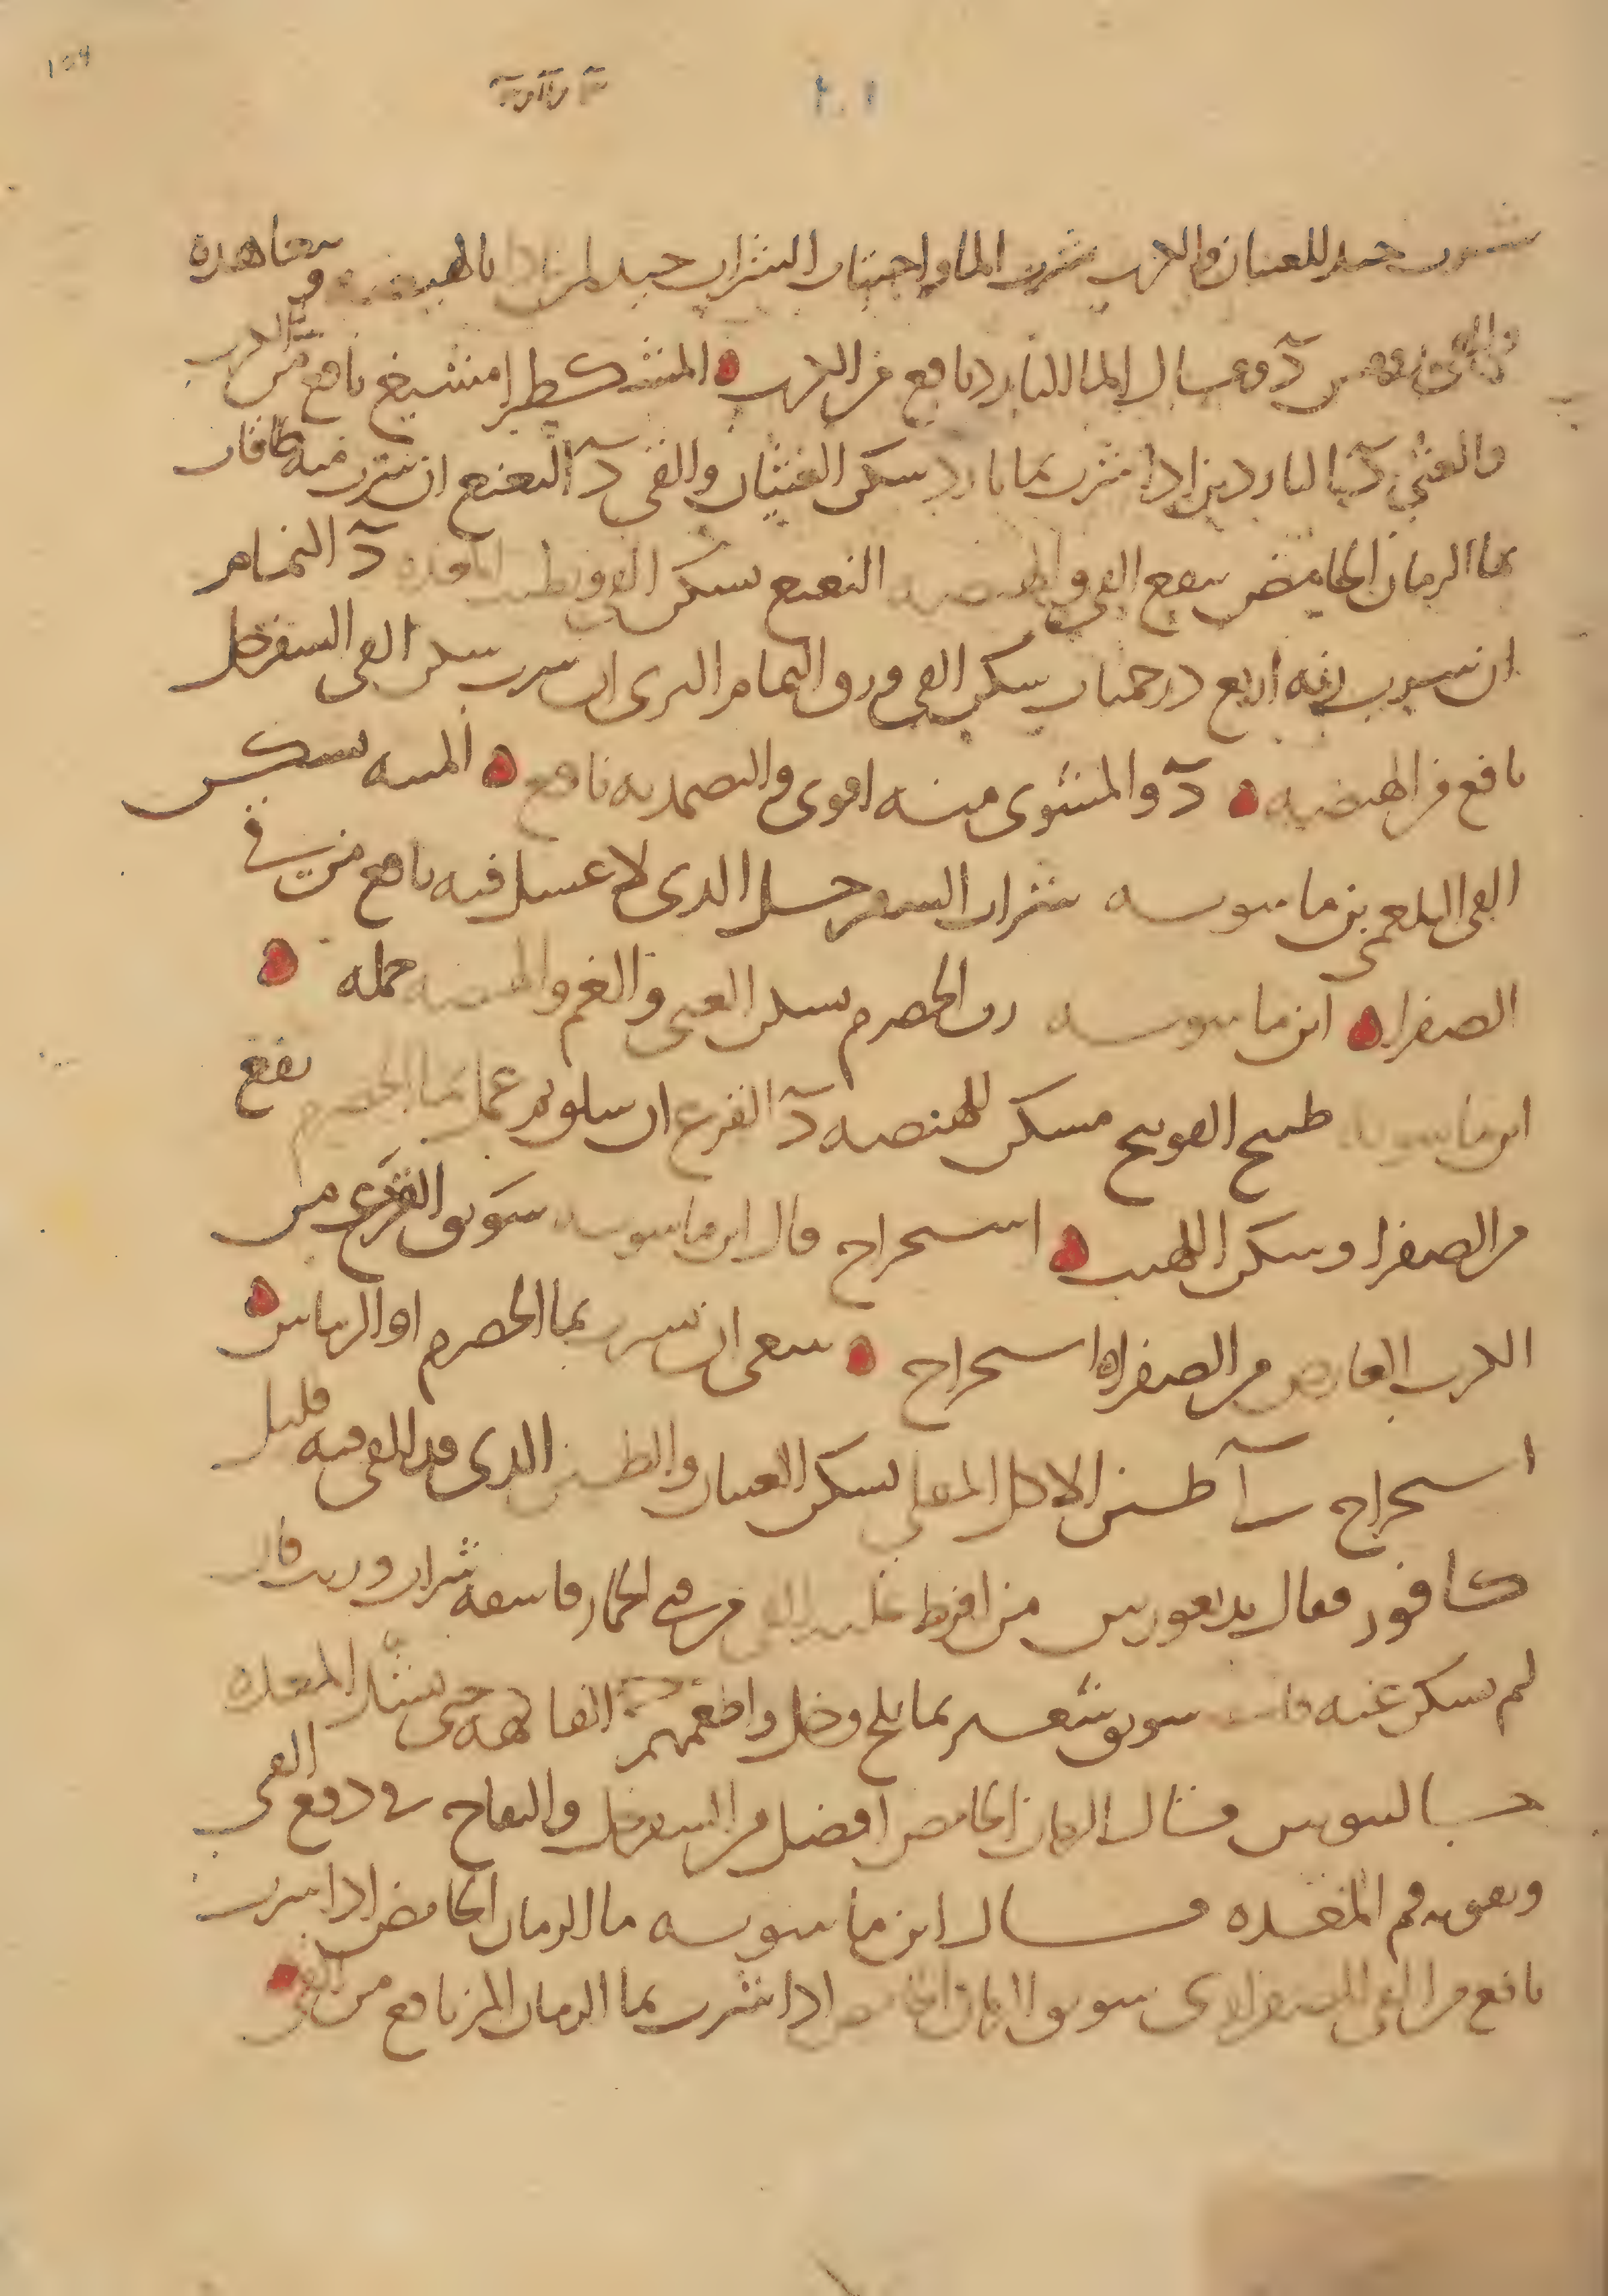 شرب جيد للغثيان والكرب شرب الماء واجتناب الشراب جيد لمن بالهيضة وتعاهده
د وقال الماء البارد نافع من الكرب المشكطرامشيغ نافع من الكرب
والغثي د الباردين اذا شرب بماء بارد سكن الغثيان والقي د النعنع ان شرب منه طاقات
بماء الرمان الحامض ينفع القي والهيضه النعنع يسكن القي د النمام
ان شرب منه اربع درخميات سكن القي ورق النمام البري ان شرب سكن القي السفرجل
نافع من الهيضه د والمشوي منه اقوى والتضميد به نافع الميبه يسكن
القي البلغمي بن ماسويه شراب السفرجل الذي لا عسل فيه نافع من قي
الصفرا ابن ماسويه رب الحصرم يسكن القي والغم والهيضه جمله
ابن ماسويه طبيخ الفوتنج مسكن للهيضه د القرع ان سلق ثم عمل بماء الحصرم نفع
من الصفرا وسكن اللهيب استخراج قال ابن ماسويه سويق القرع من
الكرب العارض من الصفرا استخراج ينبغي ان يشرب بماء الحصرم او الرباس
استخراج طين الاكل المقلي يسكن الغثيان والطين الذي قد القي فيه قليل
كافور فقال بديغورس من افرط عليه القي من قي الخمار فاسقه شراب ورد فان
لم يسكن عنه سويق شعير بماء ثلج وخل واطعمهم الفاكهه حتى يشتد المعده
جالينوس فقال الرمان الحامض افضل من السفرجل والتفاح في دفع القي
وتقويه فم المعده قال ابن ماسويه ماء الرمان الحامض اذا شرب
نافع من القي الصفراوي سويق الرمان الحامض اذا شرب بماء الرمان المز نافع من القي